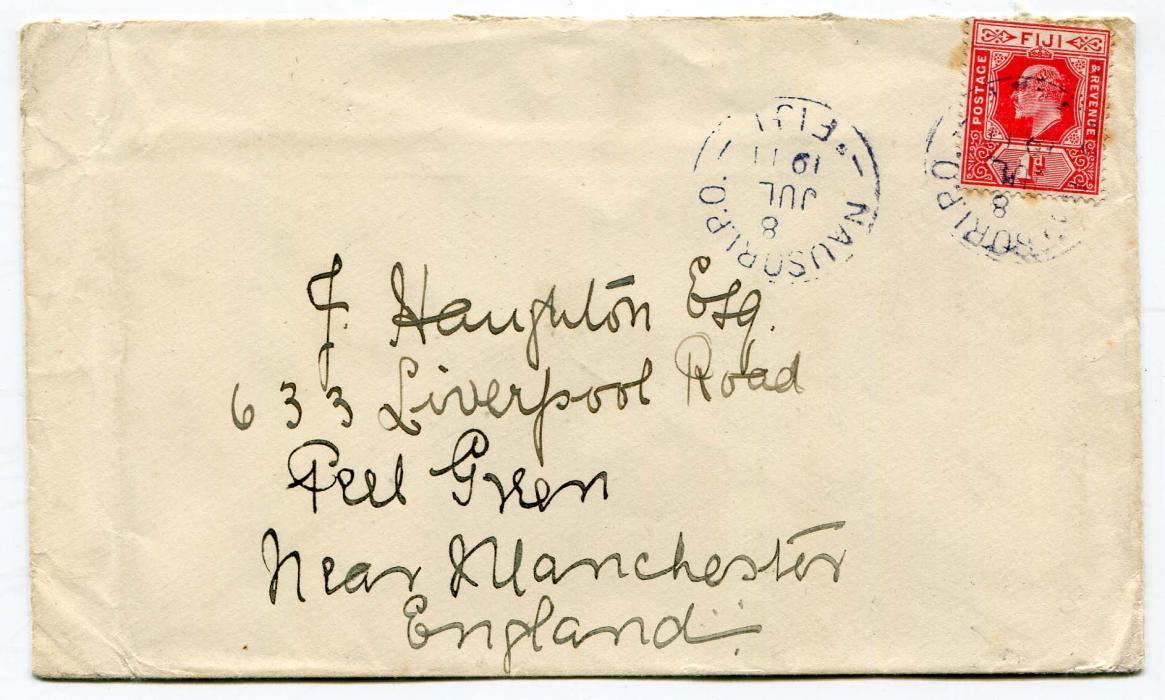 FIJI
POSTAGE & REVENUE
1d
NAUSORI.P.O.
8
JUL
19 11
FIJI
8
J. Haughton Esq.
633 Liverpool Road
Peel Green
Near Manchester
England